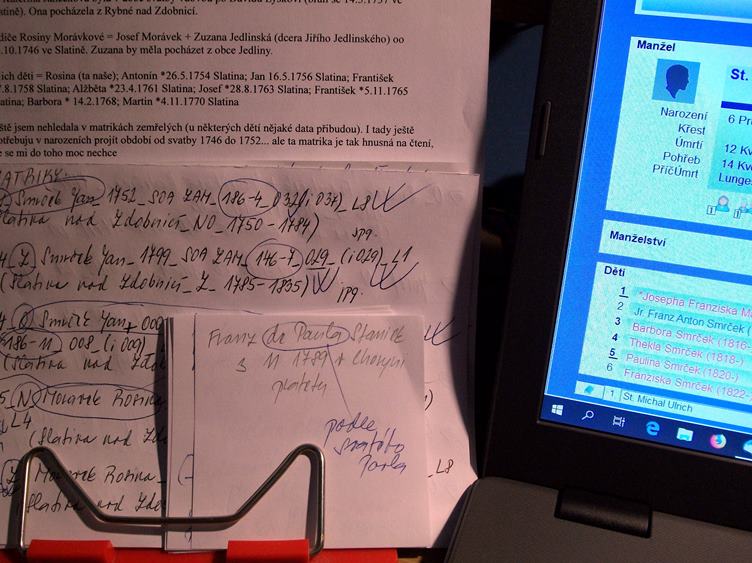 Slatině). Ona pocházela z Rybné nad Zdobnicí.
Rodiče Rosiny Morávkové = Josef Morávek + Zuzana Jedlinská (dcera Jiřího Jedlinského) oo
.10.1746 ve Slatině. Zuzana by měla pocházet z obce Jedliny.
ich děti = Rosina (ta naše); Antonín *26.5.1754 Slatina; Jan 16.5.1756 Slatina; František
.8.1758 Slatina; Alžběta *23.4.1761 Slatina; Josef *28.8.1763 Slatina; František *5.11.1765
latina; Barbora * 14.2.1768; Martin *4.11.1770 Slatina
ště jsem nehledala v matrikách zemřelých (u některých dětí nějaké data přibudou). I tady ještě
otřebuju v narozených projít období od svatby 1746 do 1752... ale ta matrika je tak hnusná na čtení,
e se mi do toho moc nechce
MATRIKY:
Smrček Jan 1752_SOA ZAM_186-4_032(i 037)_L8
Slatina nad Zdobnicí_NO_1750-1784)
JPG.
4_Z_Smrček Jan_1799_SOA ZAM_146-7_029_(i029)_L1
(Slatina nad Zdobnicí_Z_1785-1835)
JPG.
4_O_Smrček Jan
186-11_008_(i 009)
(Slatina nad Zdob
5_N_Moravek Rosina
L4
(Slatina nad Zdo
Z_Moravek Rosina_
L8
Slatina nad Zdo
Franz de Paula Stanick
3 11 1789 +
podle
svatého
Pavla
Manžel
St.
Narození
6 Pr
Křest
Úmrtí
12 Kv
Pohřeb
14 Kv
PříčÚmrt
Lunge
Manželství
Děti
1 *Josepha Franziska M
2 Jr Franz Anton Smrček (
3 Barbora Smrček (1816-
4 Thekla Smrček (1818-)
5 Paulina Smrček (1820-)
6 Franziska Smrček (1822-
1 St. Michal Ulrich